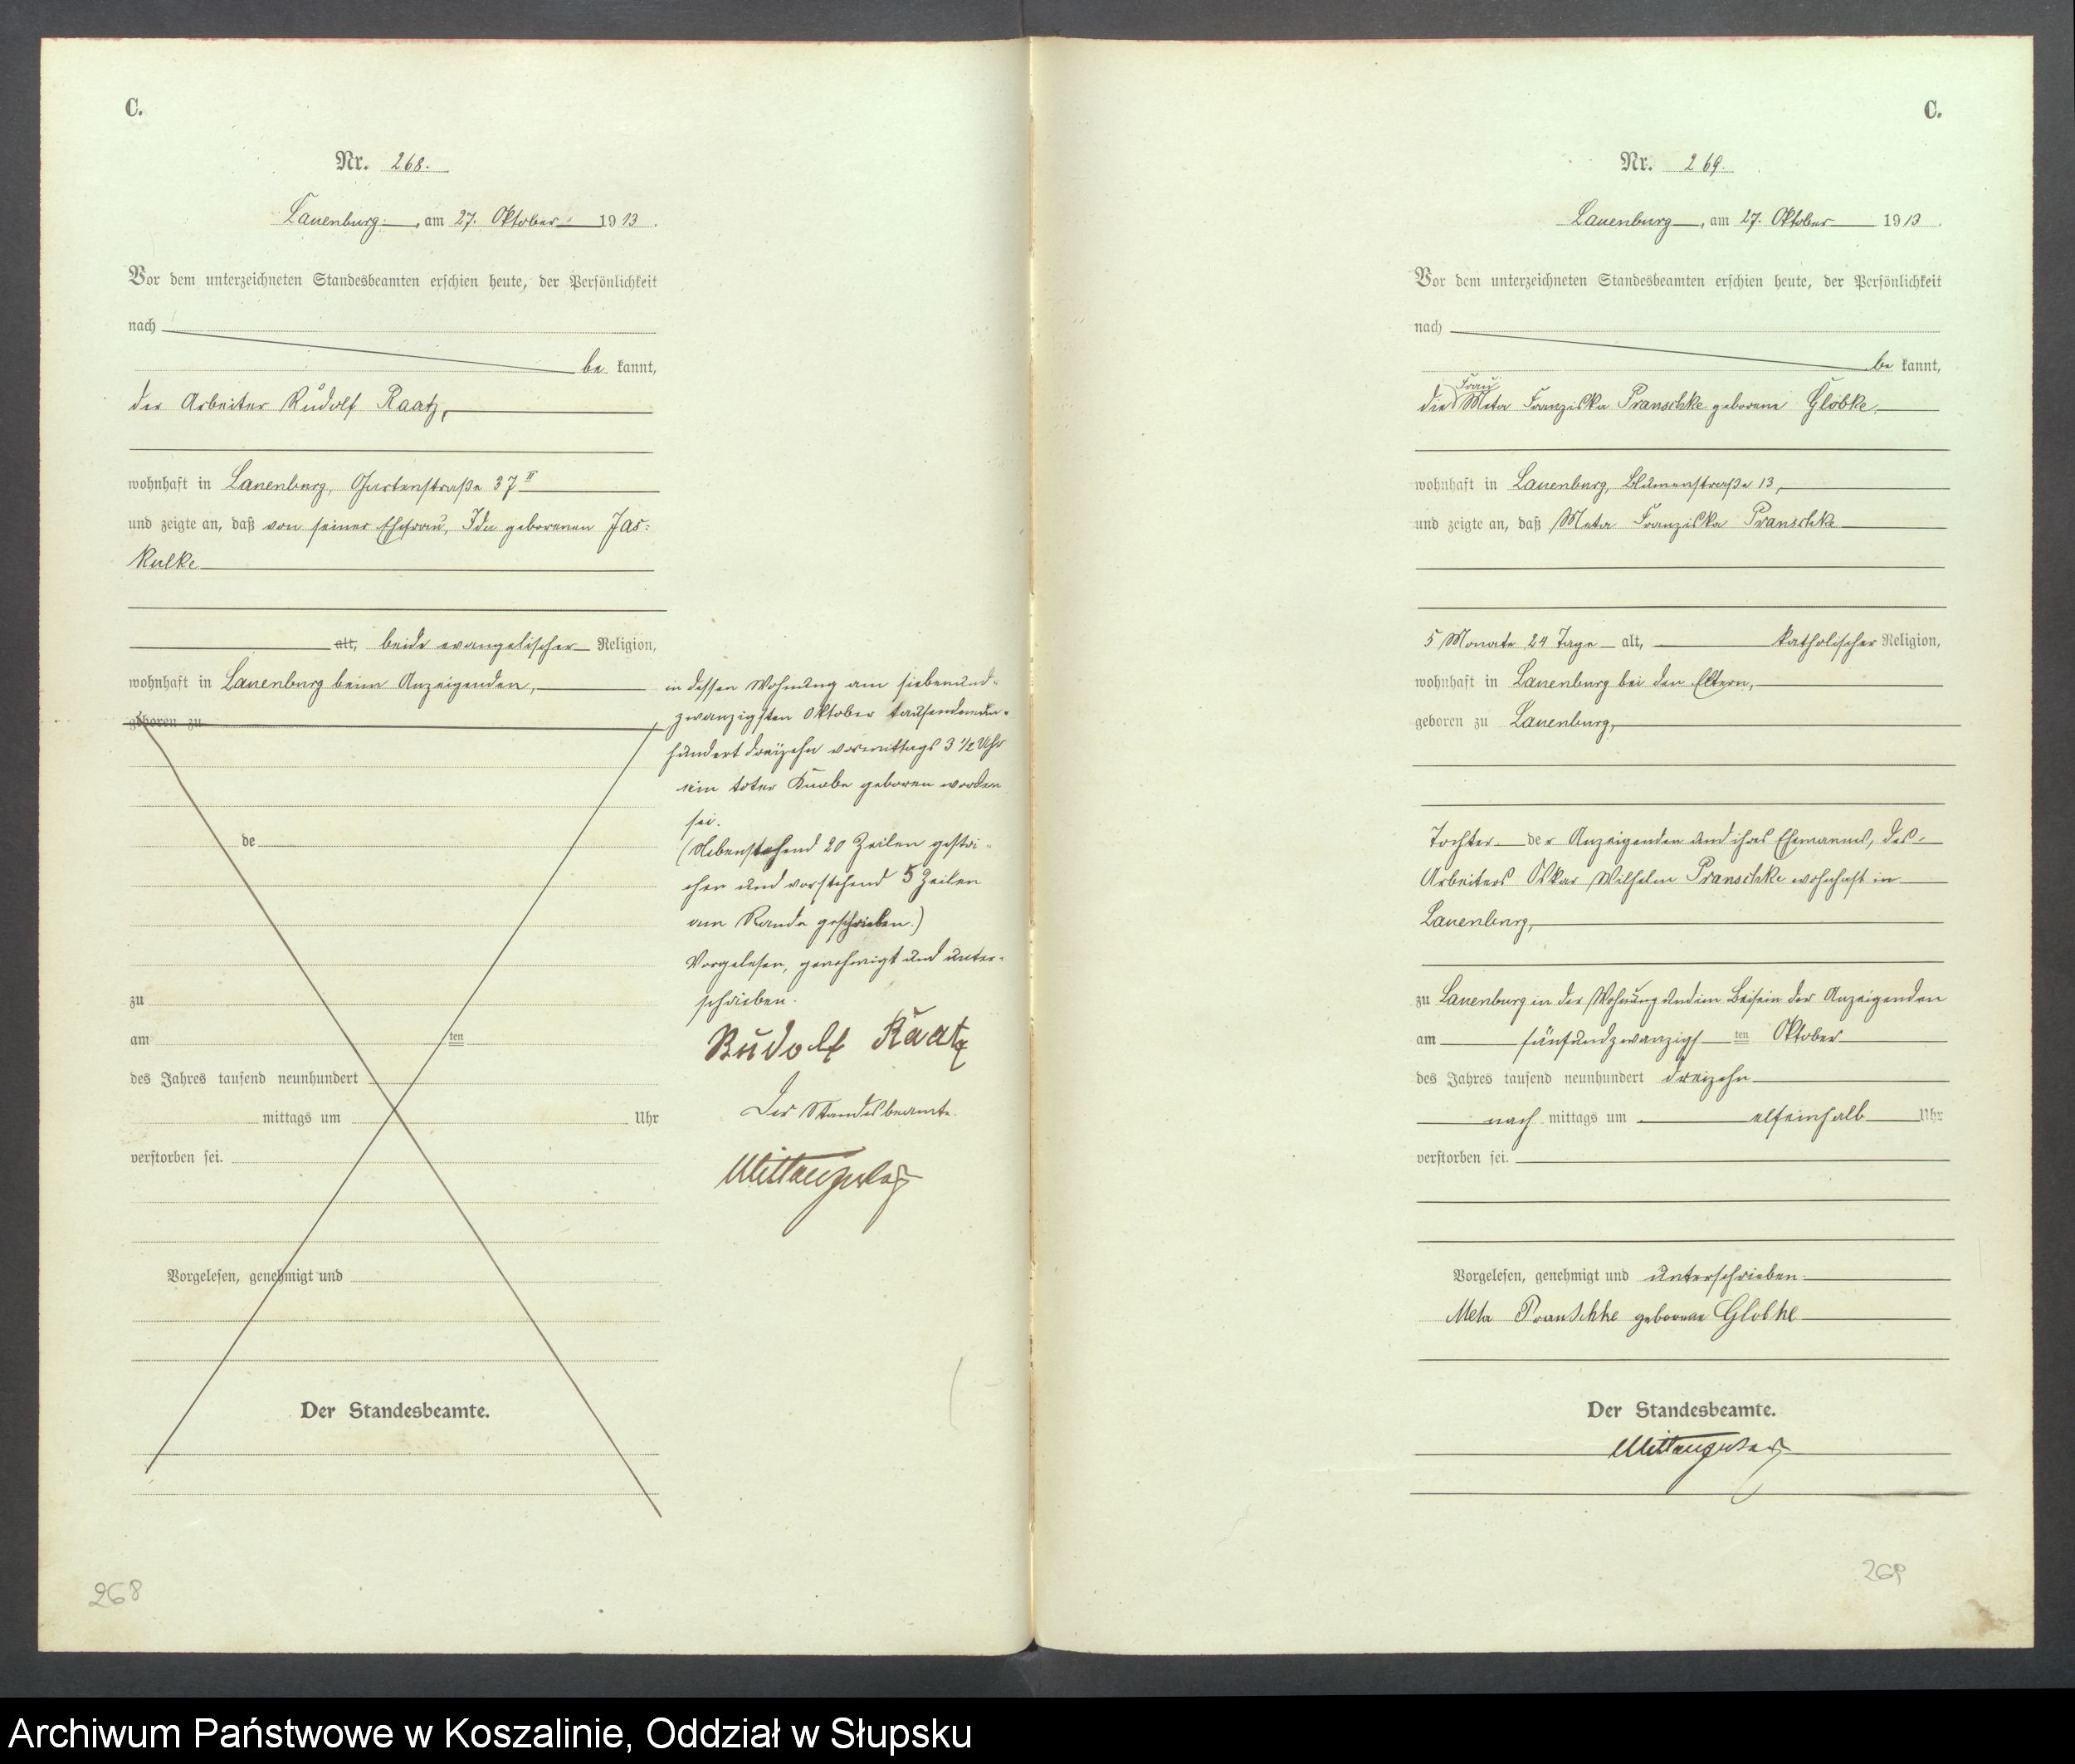 C.
Nr. 268.
Lauenburg, am 27. Oktober 1913.
Vor dem unterzeichneten Standesbeamten erschien heute, der Persönlichkeit
nach
be kannt,
der Arbeiter Rudolf Raatz,
wohnhaft in Lauenburg, Gartenstraße 37 II
und zeigte an, daß von seiner Ehefrau, Ida geborenen Jas=
kulke
alt, beide evangelischer Religion,
wohnhaft in Lauenburg beim Anzeigenden,
geboren zu
de
zu
am ten
des Jahres tausend neunhundert
mittags um Uhr
verstorben sei.
Vorgelesen, genehmigt und
Der Standesbeamte.
in dessen Wohnung am siebenund-
zwanzigsten Oktober tausendneun-
hundert dreizehn vormittags 3 1/2 Uhr
ein toter Knabe geboren worden
sei.
(Nebenstehend 20 Zeilen gestri-
chen und vorstehend 5 Zeilen
am Rande geschrieben.)
Vorgelesen, genehmigt und unter-
schrieben.
Rudolf Raatz
Der Standesbeamte.
268
C.
Nr. 269.
Lauenburg, am 27. Oktober 1913.
Vor dem unterzeichneten Standesbeamten erschien heute, der Persönlichkeit
nach
be kannt,
Frau
die Meta Franziska Pranschke geborene Globke,
wohnhaft in Lauenburg, Blumenstraße 13,
und zeigte an, daß Meta Franziska Pranschke
5 Monate 24 Tage alt, katholischer Religion,
wohnhaft in Lauenburg bei den Eltern,
geboren zu Lauenburg,
Tochter der Anzeigenden und ihres Ehemanns, des
Arbeiters Oskar Wilhelm Pranschke wohnhaft in
Lauenburg,
zu Lauenburg in der Wohnung und im Beisein der Anzeigenden
am fünfundzwanzigsten Oktober
des Jahres tausend neunhundert dreizehn
nach mittags um elfeinhalb Uhr
verstorben sei.
Vorgelesen, genehmigt und unterschrieben.
Meta Pranschke geborene Globke
Der Standesbeamte.
269
Archiwum Państwowe w Koszalinie, Oddział w Słupsku